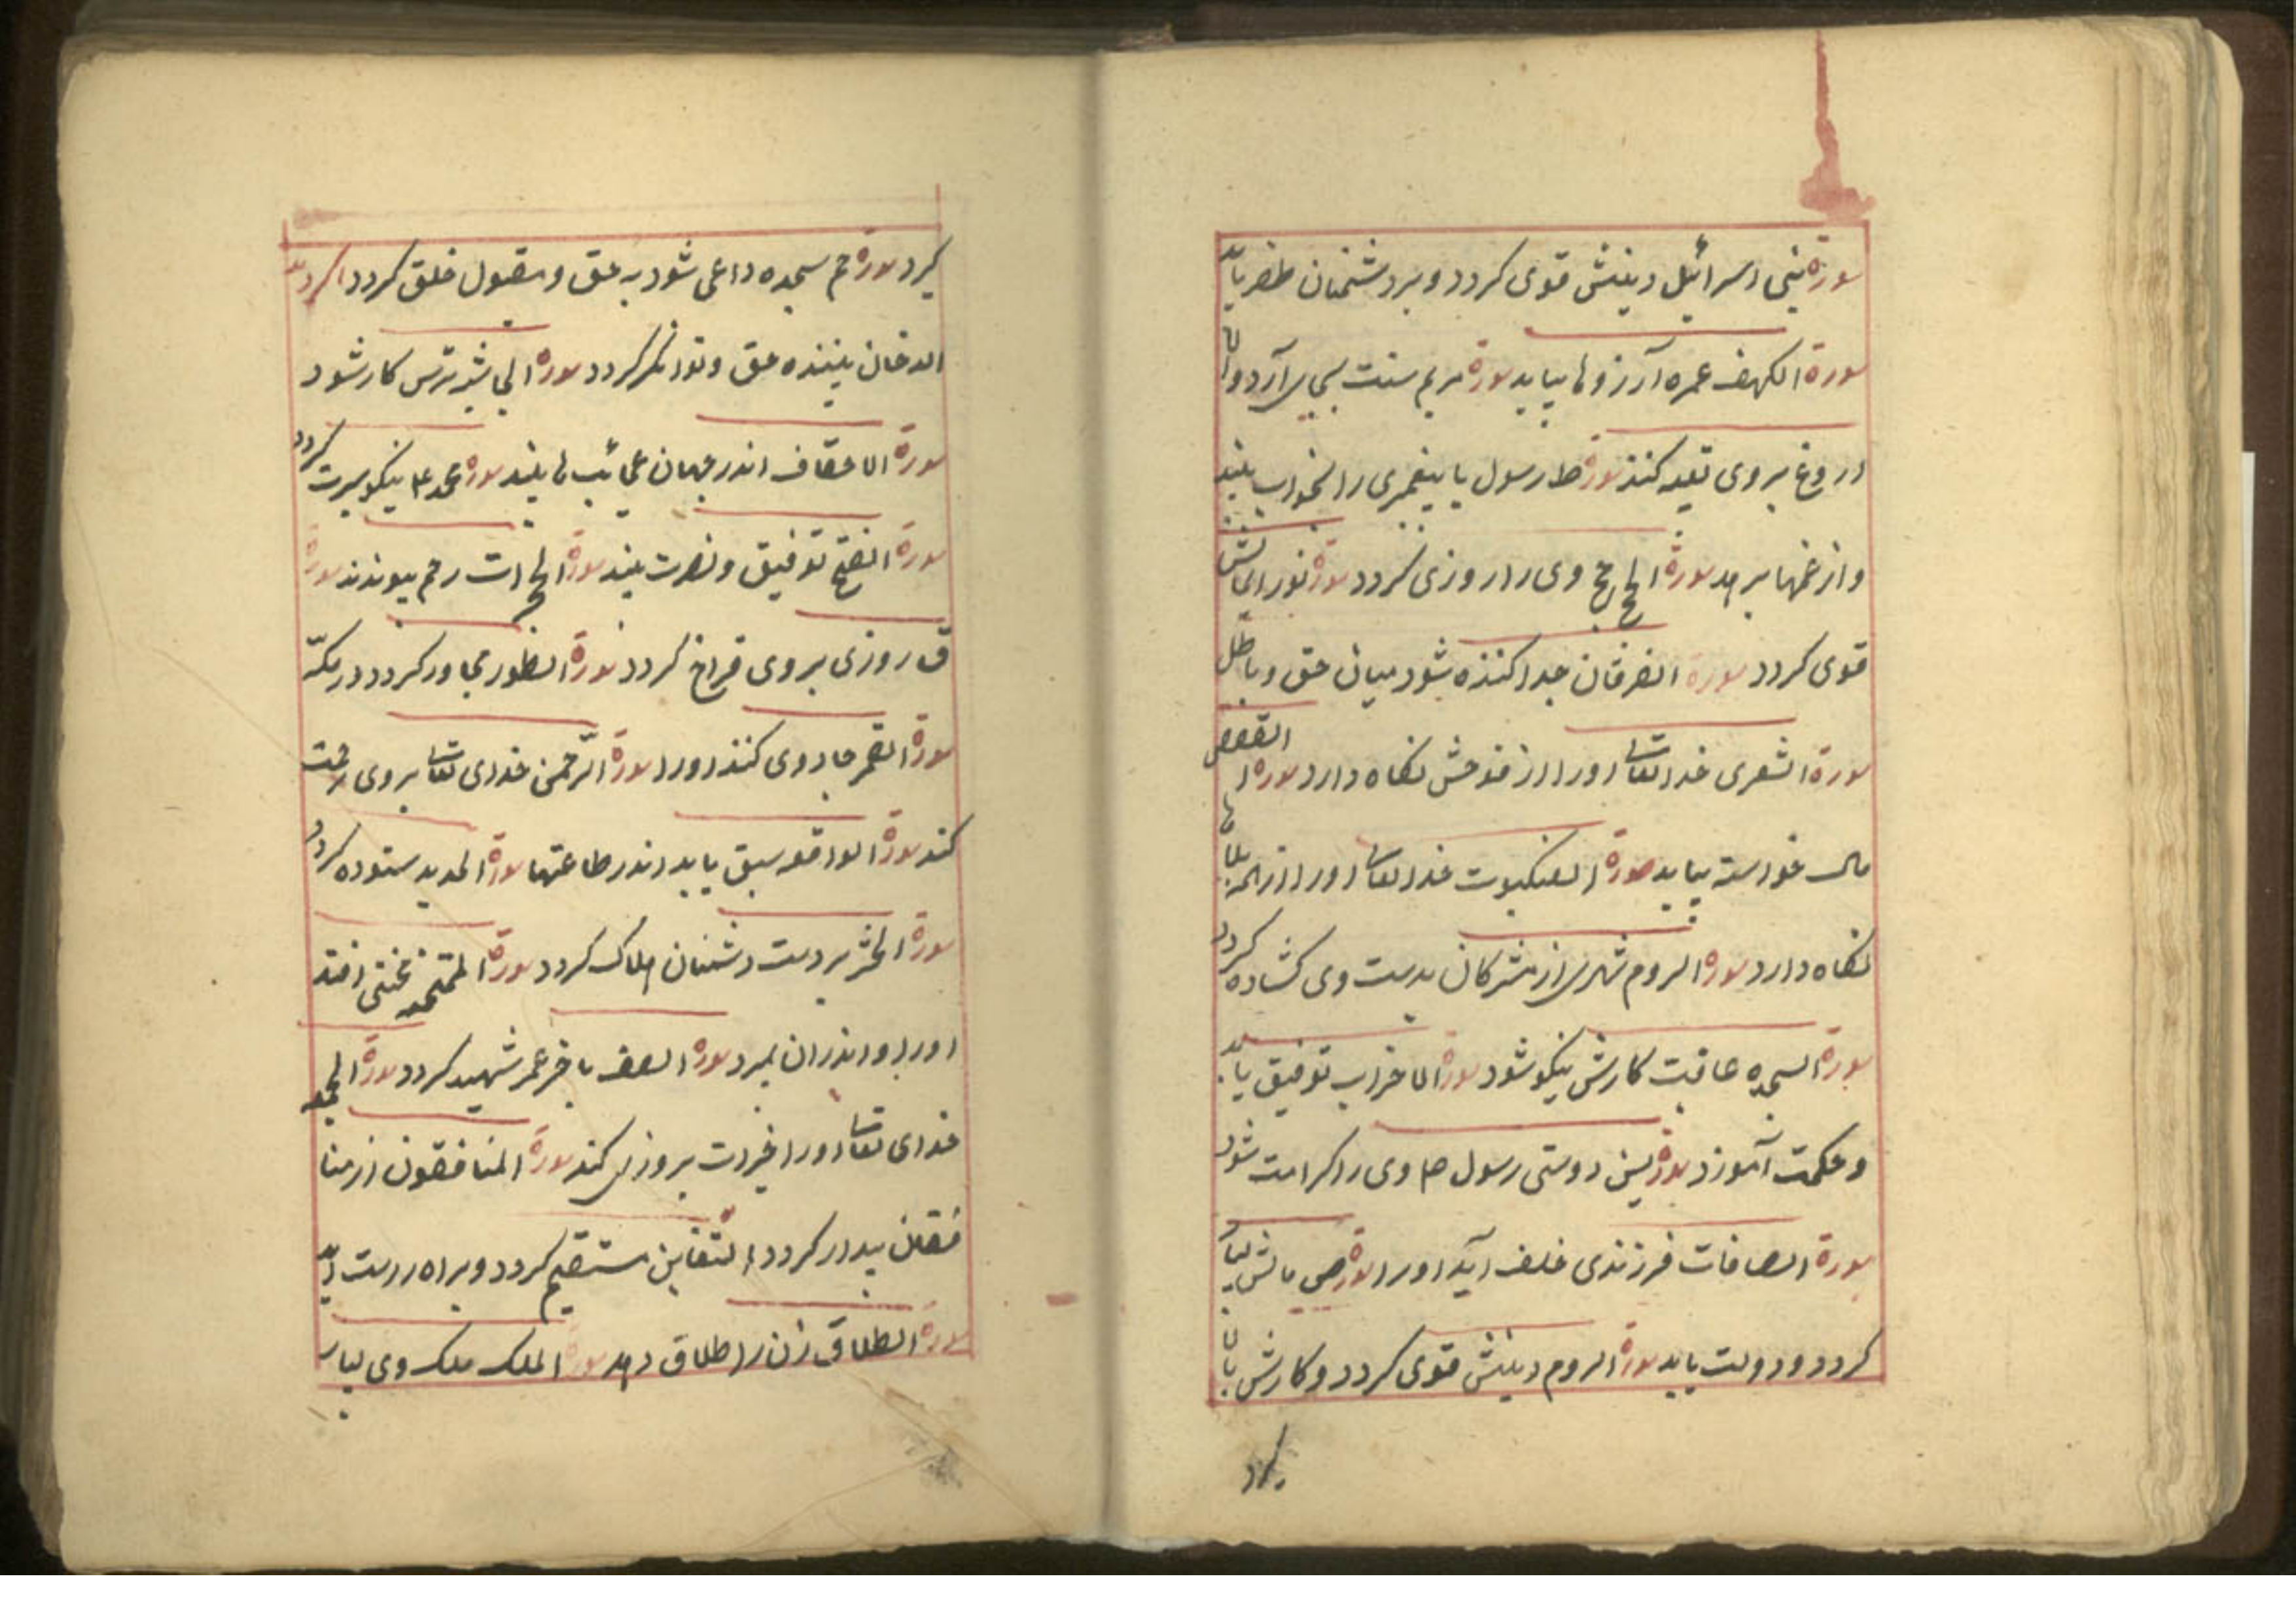 سورة بنی اسرائیل دینش قوی کردد و بر دشمنان ظفر یابد
سورة الکهف عمره آرزوها بیابد سورة مریم سنت بجای آرد و
دروغ بر وی کنند سورة طه رسول یا پیغمبری را بخواب بیند
و از غمها برهد سورة الحج حج وی را روزی کردد سورة نور ایمانش
قوی کردد سورة الفرقان جدا کننده شود میان حق و باطل
سورة الشعری خدا تعالی اورا از فوحش نکاه دارد سورة القصص
مال خواسته بیابد سورة العنکبوت خدا تعالی اورا از همه بلاها
نکاه دارد سورة الروم شهری از مشرکان بدست وی کشاده کردد
سورة السجده عاقبت کارش نیکو شود سورة الاحزاب توفیق یابد
و حکمت آموزد سورة یس دوستی رسول ص وی را کرامت شود
سورة الصافات فرزندی خلف آید اورا سورة ص مالش بسیار
کردد و دولت یابد سورة الروم دینش قوی کردد و کارش بالا
کیرد
کیرد سورة حم سجده داعی شود به حق و مقبول خلق کردد
الدخان بیننده حق و توانکر کردد سورة الجاثیه ترس کار شود
سورة الاحقاف اندر جهان عجائب ها بیند سورة محمد ع نیکو سیرت کردد
سورة الفتح توفیق و نصرت بیند سورة الحجرات رحم پیوندند سورة
ق روزی بر وی فراخ کردد سورة الطور مجاور کردد در مکّه
سورة القمر جادوی کنند اورا سورة الرّحمن خدای تعالی بر وی رحمت
کند سورة الواقعه سبق یابد اندر طاعتها سورة الحدید ستوده کردد
سورة الحشر بر دست دشمنان هلاک کردد سورة الممتحنه محنتی افتد
اورا و اندران بمیرد سورة الصف باخر عمر شهید کردد سورة الجمعه
خدای تعالی اورا خیرات بروزی کند سورة المنافقون از منا
فقان بیدار کردد التغابن مستقیم کردد و براه راست آید
سورة الطلاق زن را طلاق دهد سورة الملک ملک وی بسیار